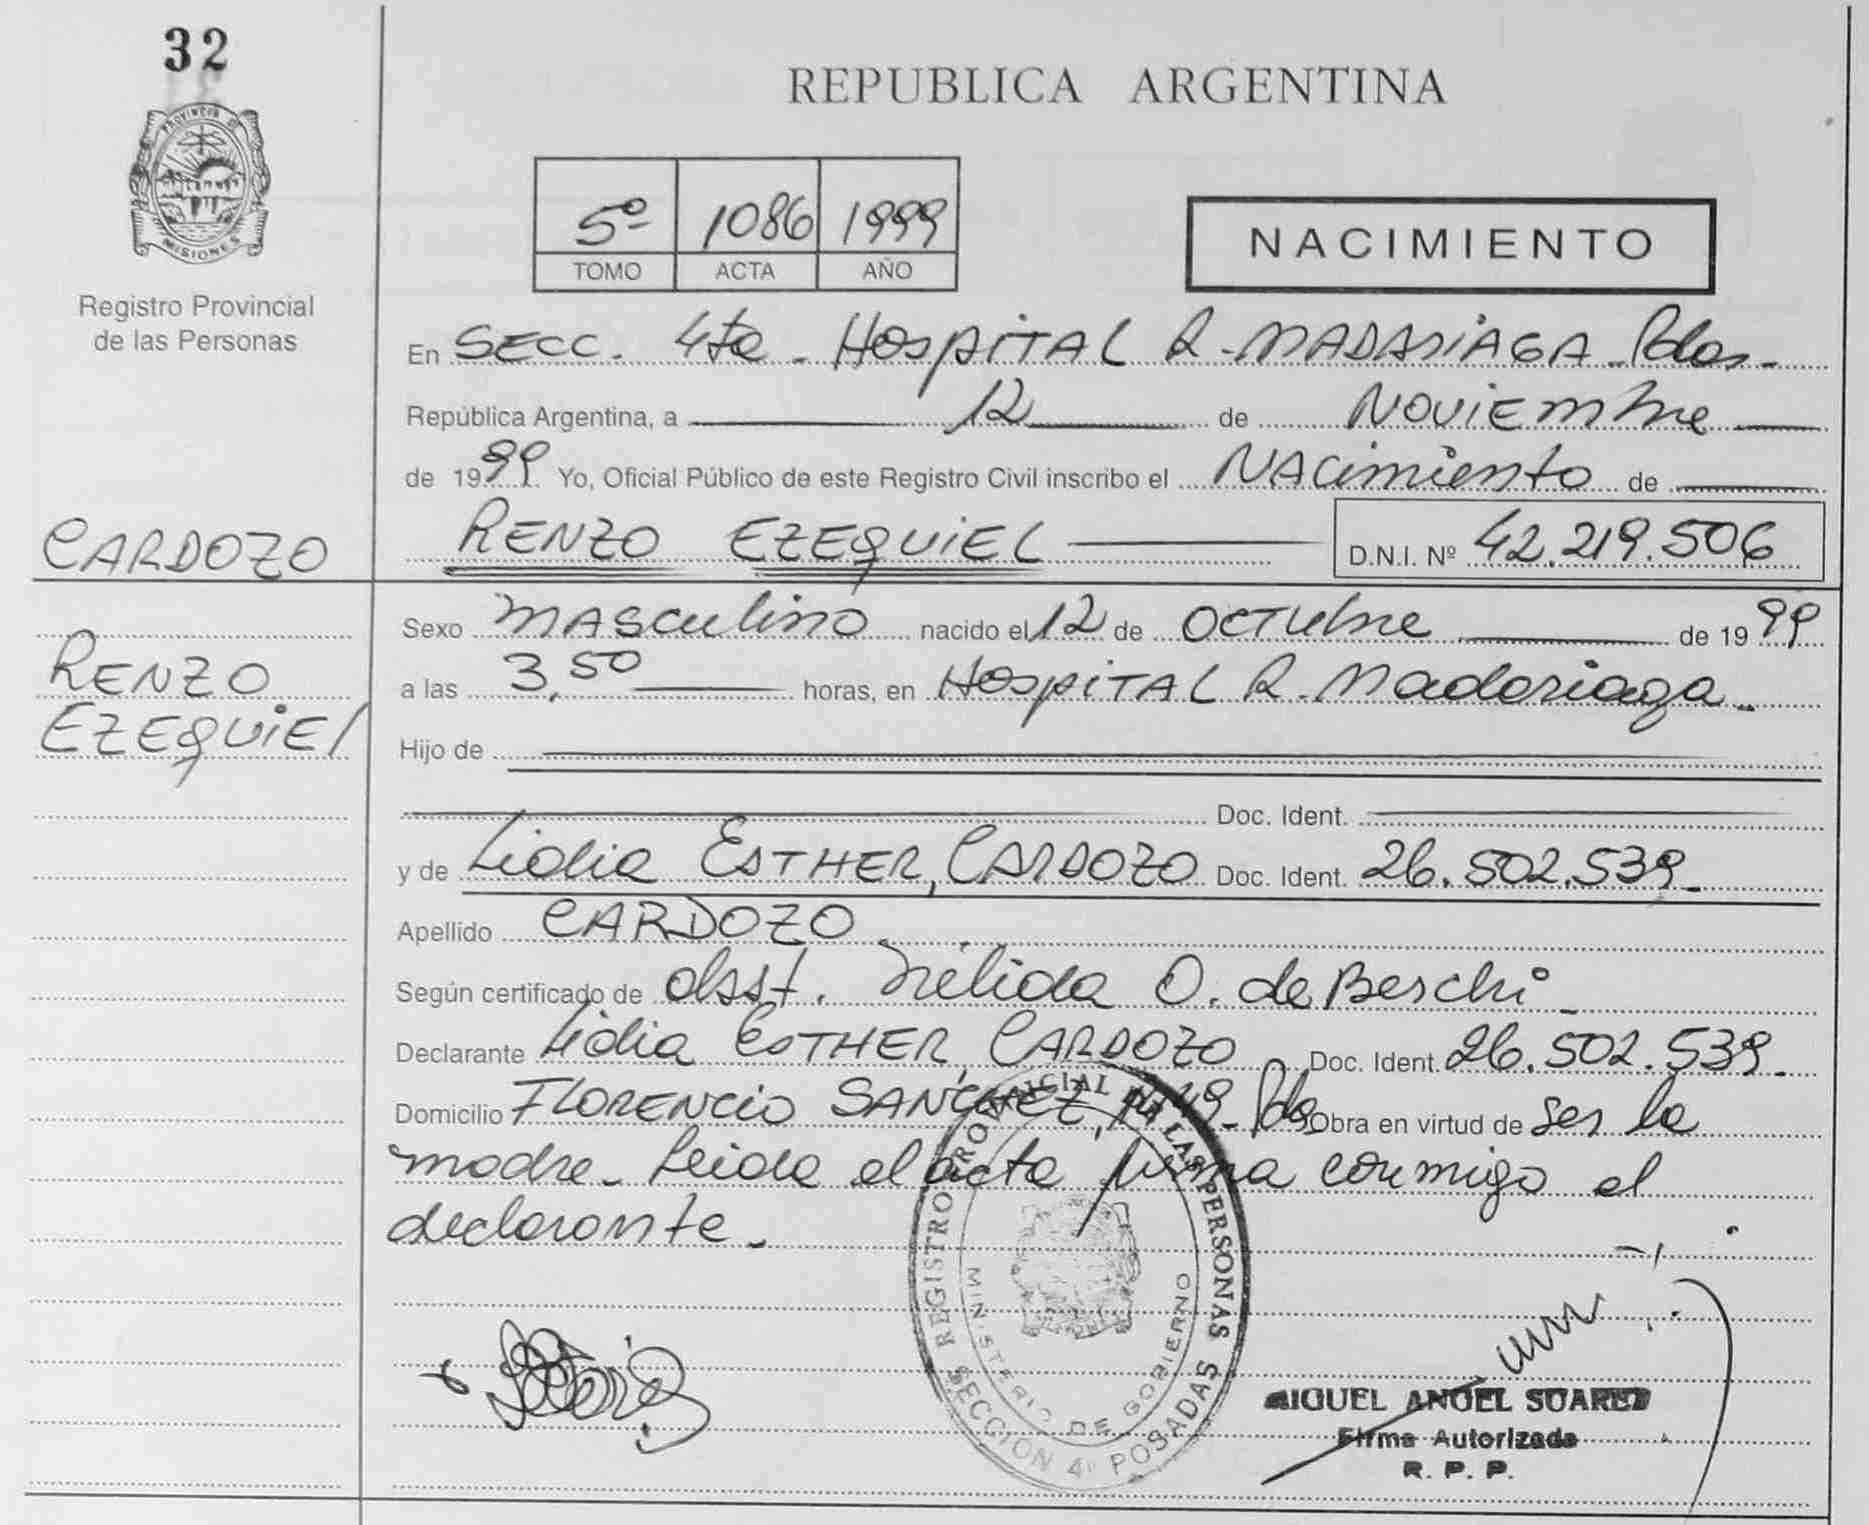 32
REPUBLICA ARGENTINA
PROVINCIA D
MISIONES
Registro Provincial
de las Personas
5º 1086 1999
TOMO ACTA AÑO
NACIMIENTO
En SECC. 4ta - HOSPITAL R. MADARIAGA Pdas -
República Argentina, a 12 de NOVIEMbre
de 1999 Yo, Oficial Público de este Registro Civil inscribo el NACimiento de
CARDOZO
RENZO EZEQUIEL D.N.I. Nº 42.219.506
RENZO
EZEQUIEL
Sexo MASCulino nacido el 12 de OCTUbre de 1999
a las 3,50 horas, en HOSPITAL R. Madariaga -
Hijo de
Doc. Ident.
y de Lidia ESTHER, CARDOZO Doc. Ident. 26.502.539 -
Apellido CARDOZO
Según certificado de obst. Nélida O. de Beschi
Declarante Lidia ESTHER, CARDOZO Doc. Ident. 26.502.539 -
Domicilio FLORENCIO SANCHEZ, - Pdas Obra en virtud de ser la
madre - Leida el acta firma conmigo el
declarante -
REGISTRO PROVINCIAL DE LAS PERSONAS
MINISTERIO DE GOBIERNO
SECCION 4ª POSADAS
MIGUEL ANGEL SUAREZ
Firma Autorizada
R. P. P.